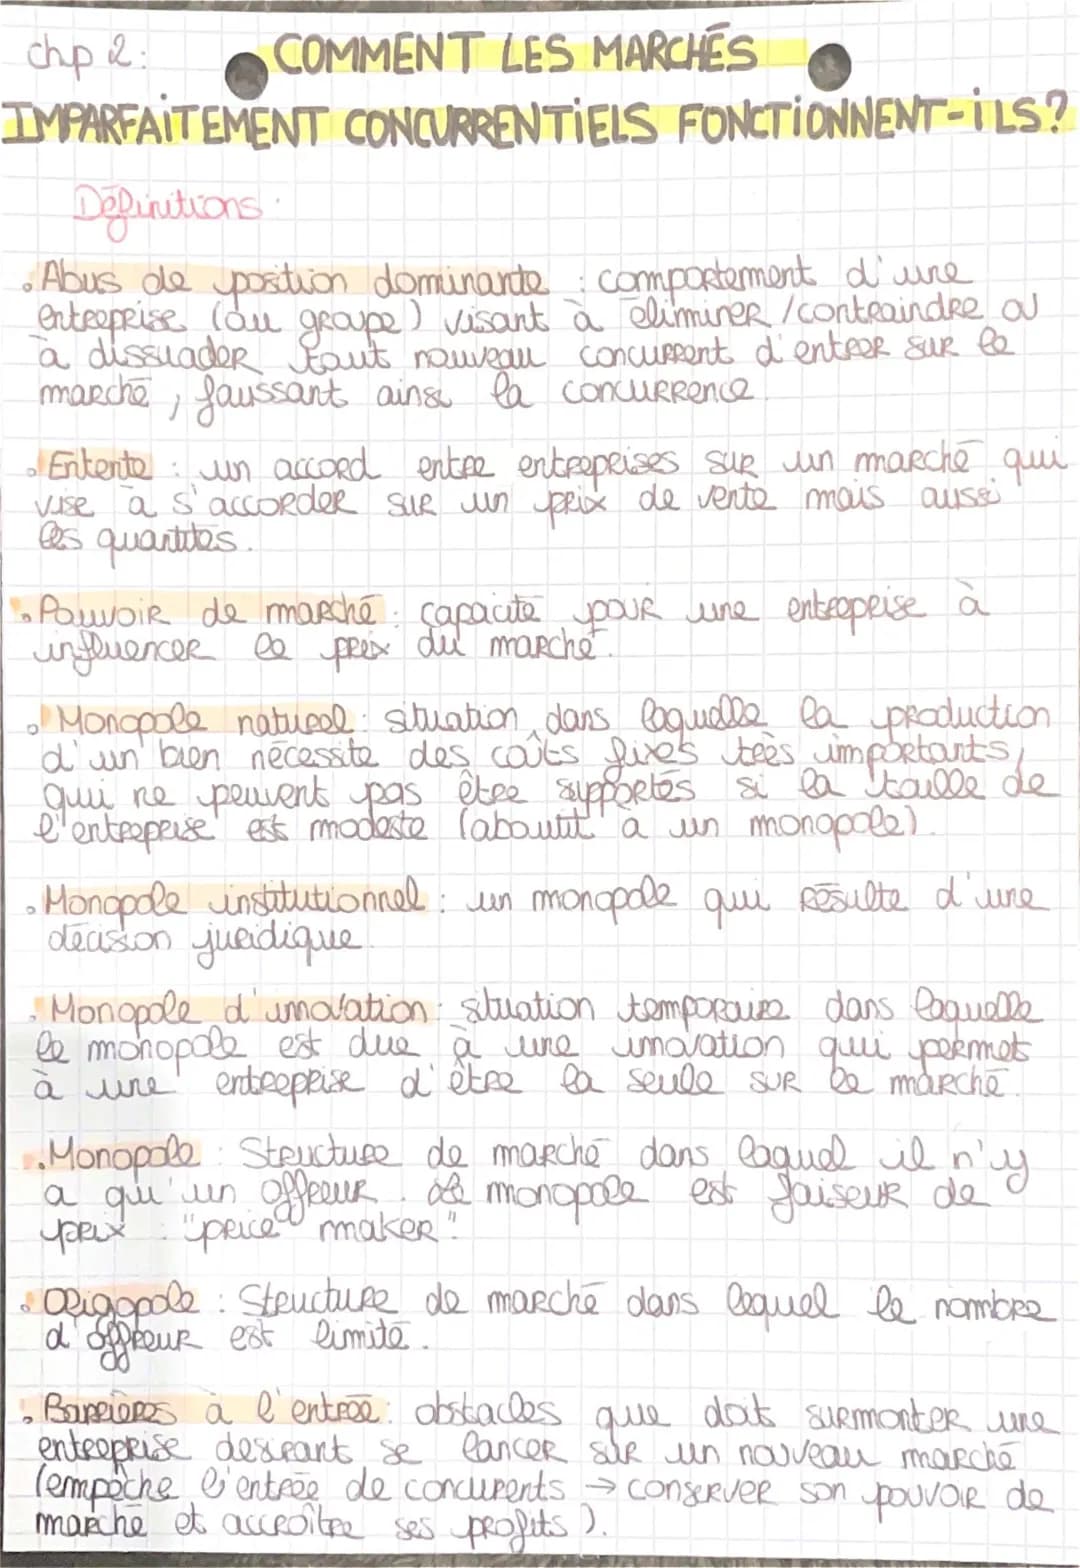 chp 2:
COMMENT LES MARCHÉS
IMPARFAITEMENT CONCURRENTIELS FONCTIONNENT-ILS?
Définitions :
• Abus de position dominante : comportement d'une
entreprise (ou groupe) visant à éliminer / contraindre ou
à dissuader tout nouveau concurrent d'entrer sur le
marché, faussant ainsi la concurrence.
• Entente : un accord entre entreprises sur un marché qui
vise à s'accorder sur un prix de vente mais aussi
les quantités.
• Pouvoir de marché : capacité pour une entreprise à
influencer le prix du marché.
• Monopole naturel : situation dans laquelle la production
d'un bien nécessite des coûts fixes très importants,
qui ne peuvent pas être supportés si la taille de
l'entreprise est modeste (aboutit à un monopole).
• Monopole institutionnel : un monopole qui résulte d'une
décision juridique.
• Monopole d'innovation : situation temporaire dans laquelle
le monopole est due à une innovation qui permet
à une entreprise d'être la seule sur le marché.
• Monopole : Structure de marché dans laquel il n'y
a qu'un offreur. Le monopole est faiseur de
prix : "price maker".
• Oligopole : Structure de marché dans lequel le nombre
d'offreur est limité.
• Barrières à l'entrée : obstacles que doit surmonter une
entreprise désirant se lancer sur un nouveau marché
(empêche l'entrée de concurents → conserver son pouvoir de
marché et accroître ses profits).